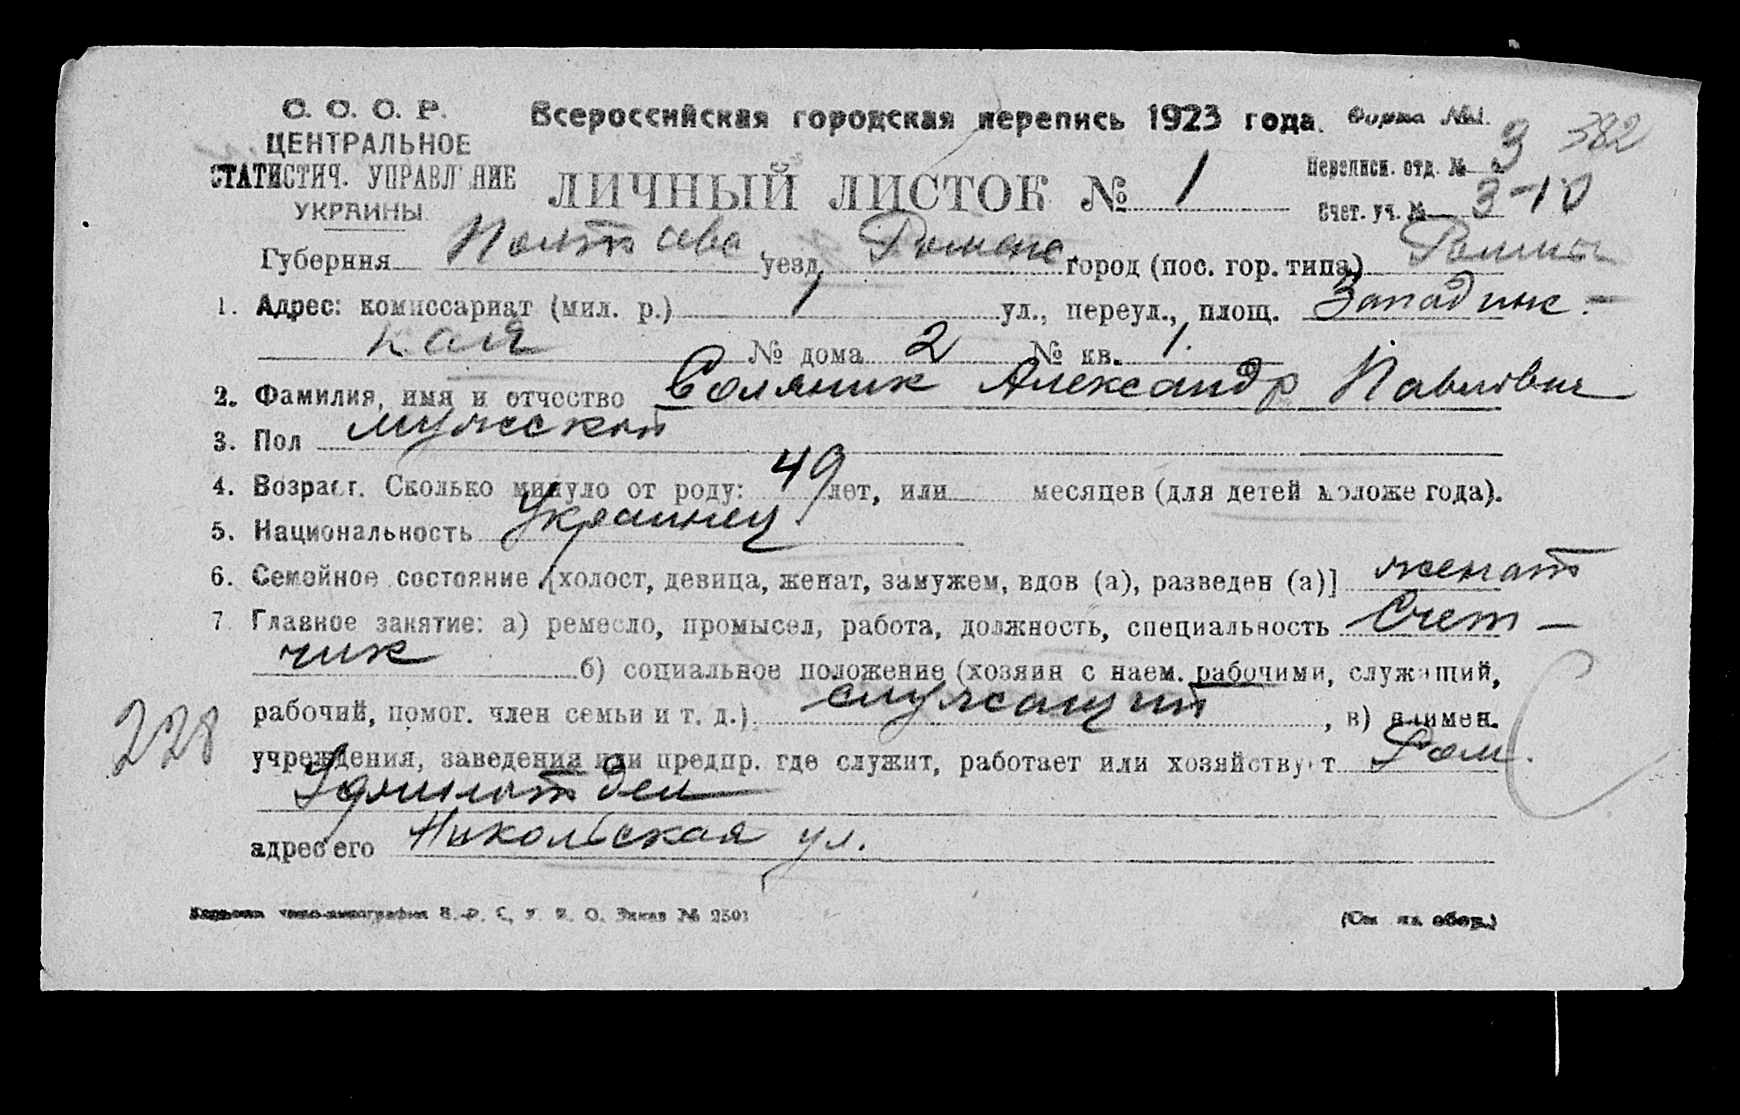 С. С. С. Р.
ЦЕНТРАЛЬНОЕ
СТАТИСТИЧ. УПРАВЛ НИЕ
УКРАИНЫ
Всероссийская городская перепись 1923 года. Форма №1.
382
ЛИЧНЫЙ ЛИСТОК № 1
Переписн. отд. № 3
Счет. уч. № 3-10
Губерния Полтава уезд Ромена город (пос. гор. типа) Ромны
1. Адрес: комиссариат (мил. р.) 1 ул., переул., площ. Западинс-
кая № дома 2 № кв. 1.
2. Фамилия, имя и отчество Соляник Александр Павлович
3. Пол мужской
4. Возраст. Сколько минуло от роду: 49 лет, или месяцев (для детей моложе года).
5. Национальность Украинец
6. Семейное состояние [холост, девица, женат, замужем, вдов (а), разведен (а)] женат
7 Главное занятие: а) ремесло, промысел, работа, должность, специальность Счет-
чик б) социальное положение (хозяин с наем. рабочими, служащий,
рабочий, помог. член семьи и т. д.) служащий , в) наимен.
228
учреждения, заведения или предпр. где служит, работает или хозяйствует Ром.
отдел
адрес его Никольская ул.
Н.-Р. С, У. К. О. Заказ № 2501
(См на обор.)